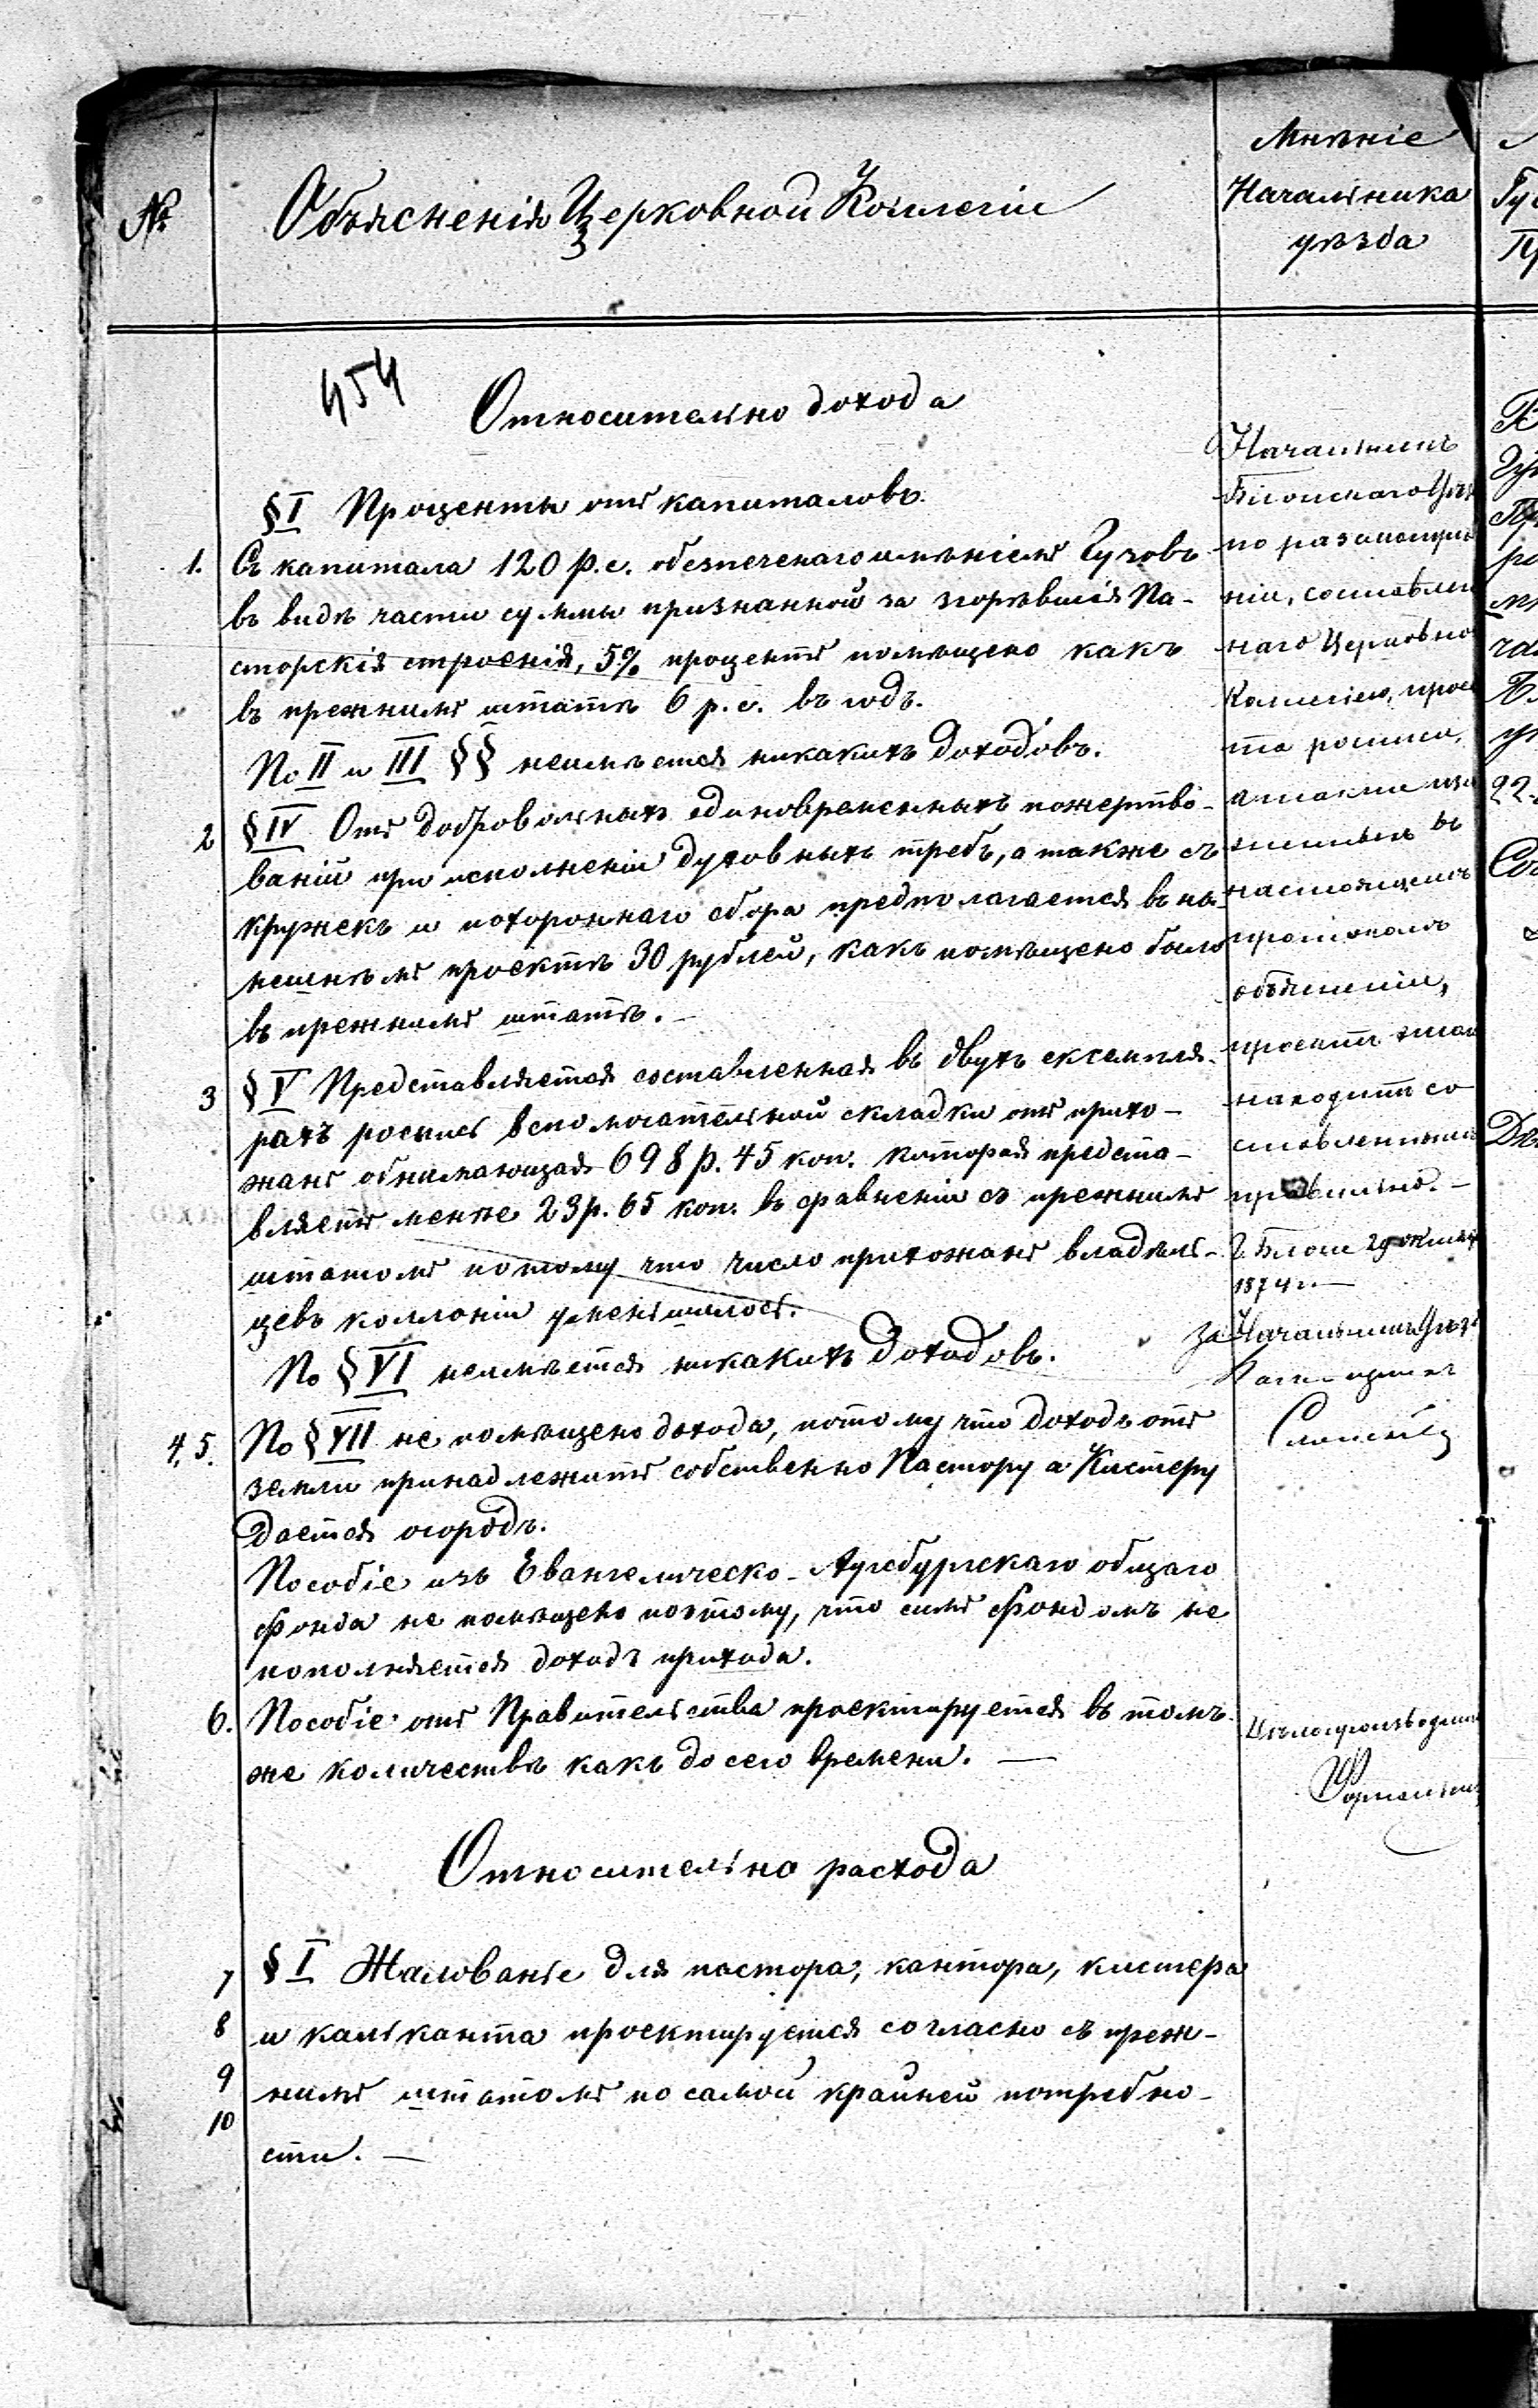 №
Объясненія Церковной Коллегіи
Мнѣніе
Начальника
уѣзда
454
Относительно дохода
§ I Проценты отъ капиталовъ.
1. Съ капитала 120 р.с. обезпеченаго имѣніемъ Гузовъ
въ видѣ части суммы признанной за згорѣвшія Па-
сторскія строенія, 5% процентъ помѣщено какъ
въ прежнимъ штатѣ 6 р.с. въ годъ.
По II и III §§ неимѣется никакихъ доходовъ.
2 § IV Отъ добровольныхъ единовременныхъ пожертво-
ваній при исполненіи духовныхъ требъ, а также съ
кружекъ и похороннаго сбора предполагается въ на-
нешнѣмъ проектѣ 30 рублей, какъ помѣщено было
въ прежнимъ штатѣ.
3 § V Представляется составленная въ двухъ екземпля-
рахъ роспись вспомогательной складки отъ прихо-
жанъ обнимающая 698 р. 45 коп. которая предста-
вляетъ менѣе 23 р. 65 коп. въ сравненіи съ прежнимъ
штатомъ потому что число прихожанъ владѣль-
цевъ коллоніи уменьшилось.
По § VI неимѣется никакихъ доходовъ.
4. 5. По § VII не помѣщено дохода, потому что доходъ отъ
земли принадлежитъ собственно Пастору а Кистеру
дается огородъ.
Пособіе изъ Евангелическо-Аугсбургскаго общаго
фонда не помѣщено поэтому, что симъ фондомъ не
пополняется доходъ прихода.
6. Пособіе отъ Правительства проектируется въ томъ-
же количествѣ какъ до сего времени. —
Относительно расхода
7 § I Жалованье для пастора, кантора, кистера
8 и кальканта проектируется согласно съ преж-
9 нимъ штатомъ по самой крайней потребно-
10
сти. —
Начальникъ
Блонскаго Уѣз
по разсмотрѣ
ніи, составлен
наго Церковно
Коллегіею, прое
та росписи,
а также изло
женныхъ въ
настоящемъ
протоколѣ
объясненій,
проектъ этотъ
находитъ со
ставленнымъ
правильно. —
г. Блоне 29 октяб
1874 г. —
за Начальника Уѣзд
Дѣлопроизводит